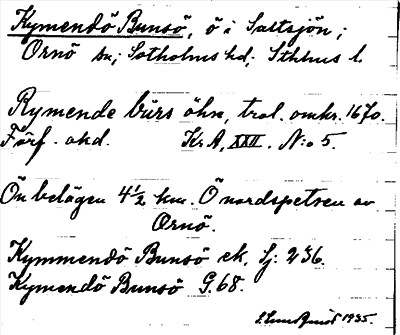 Kymendö Bunsö, ö i Saltsjön;
Ornö sn; Sotholms hd; Sthlms l.
Rymende burs öhn, trol. omkr. 1670.
Förf. okd. Kr.A, XXII. N:o 5.
Ön belägen 4½ km. Ö nordspetsen av
Ornö.
Kymmendö Bunsö ek. Sj: 236.
Kymendö Bunsö G.68.
1935